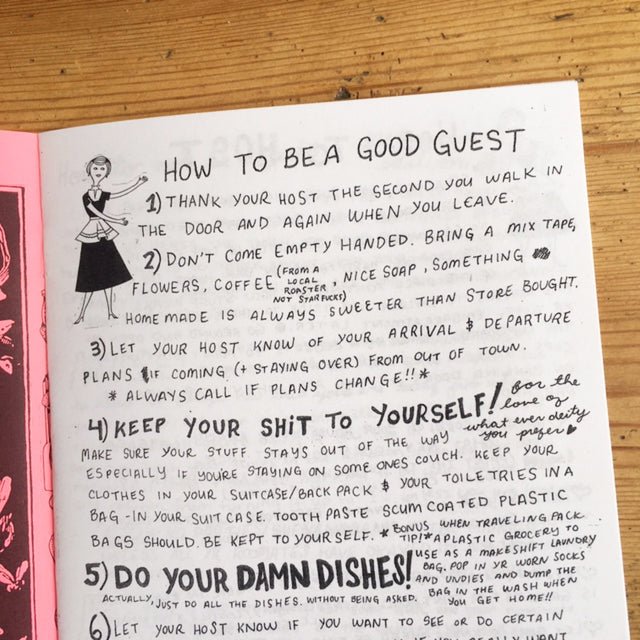 HOW TO BE A GOOD GUEST
1) THANK YOUR HOST THE SECOND YOU WALK IN
THE DOOR AND AGAIN WHEN YOU LEAVE.
2) DON'T COME EMPTY HANDED. BRING A MIX TAPE,
FLOWERS, COFFEE (FROM A LOCAL ROASTER NOT STARFUCKS), NICE SOAP, SOMETHING
HOMEMADE IS ALWAYS SWEETER THAN STORE BOUGHT.
3) LET YOUR HOST KNOW OF YOUR ARRIVAL & DEPARTURE
PLANS IF COMING (+ STAYING OVER) FROM OUT OF TOWN.
* ALWAYS CALL IF PLANS CHANGE!! *
4) KEEP YOUR SHIT TO YOURSELF! for the love of what ever deity you prefer ♥
MAKE SURE YOUR STUFF STAYS OUT OF THE WAY
ESPECIALLY IF YOU'RE STAYING ON SOME ONES COUCH. KEEP YOUR
CLOTHES IN YOUR SUITCASE/BACK PACK & YOUR TOILETRIES IN A
BAG - IN YOUR SUIT CASE. TOOTH PASTE SCUM COATED PLASTIC
BAGS SHOULD BE KEPT TO YOUR SELF.
* BONUS TIP!* WHEN TRAVELING PACK
A PLASTIC GROCERY TO
USE AS A MAKESHIFT LAUNDRY
BAG. POP IN YR WORN SOCKS
AND UNDIES AND DUMP THE
BAG IN THE WASH WHEN
YOU GET HOME!!
5) DO YOUR DAMN DISHES!
ACTUALLY, JUST DO ALL THE DISHES. WITHOUT BEING ASKED.
6) LET YOUR HOST KNOW IF YOU WANT TO SEE OR DO CERTAIN